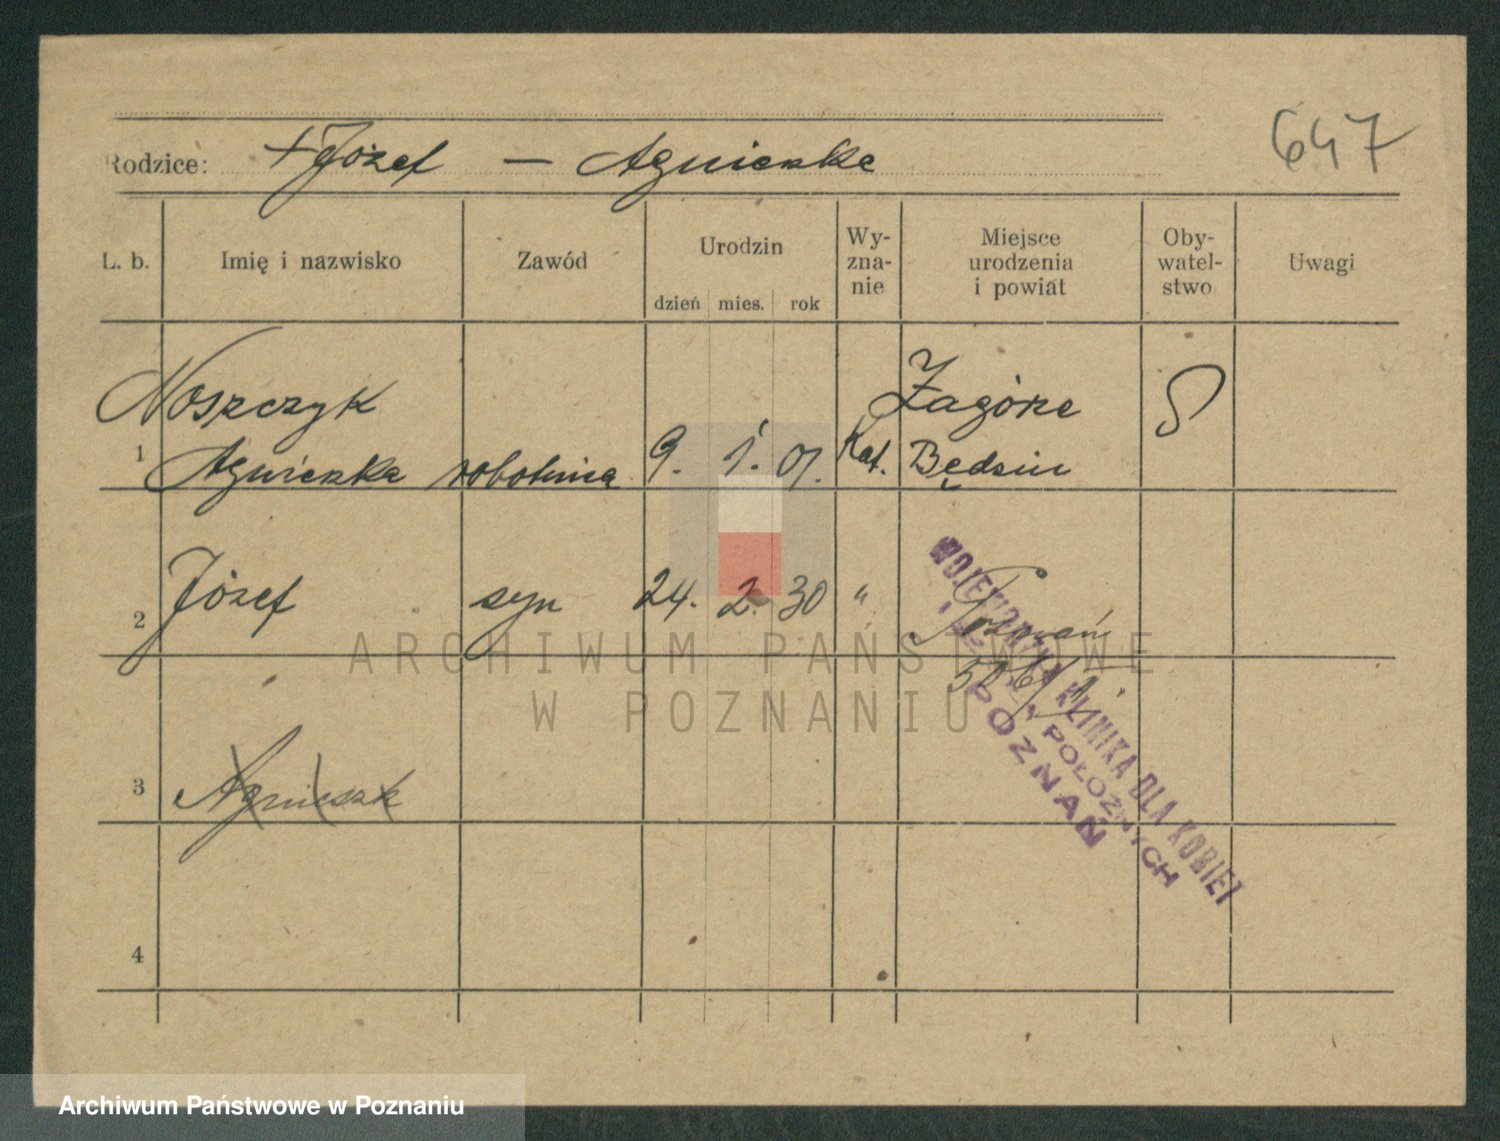 647
Rodzice: +Józef — Agnieszka
L. b. Imię i nazwisko Zawód Urodzin dzień mies. rok Wy-zna-nie Miejsce urodzenia i powiat Oby-watel-stwo Uwagi
Noszczyk Zagórze
1 Agnieszka robotnica 9. 1. 01. Kat. Będzin
2 Józef syn 24. 2. 30 " Poznań
3 Agnieszk
4
WOJEWÓDZKA KLINIKA DLA KOBIET
POŁOŻNYCH
POZNAŃ
ARCHIWUM PAŃSTWOWE
W POZNANIU
Archiwum Państwowe w Poznaniu